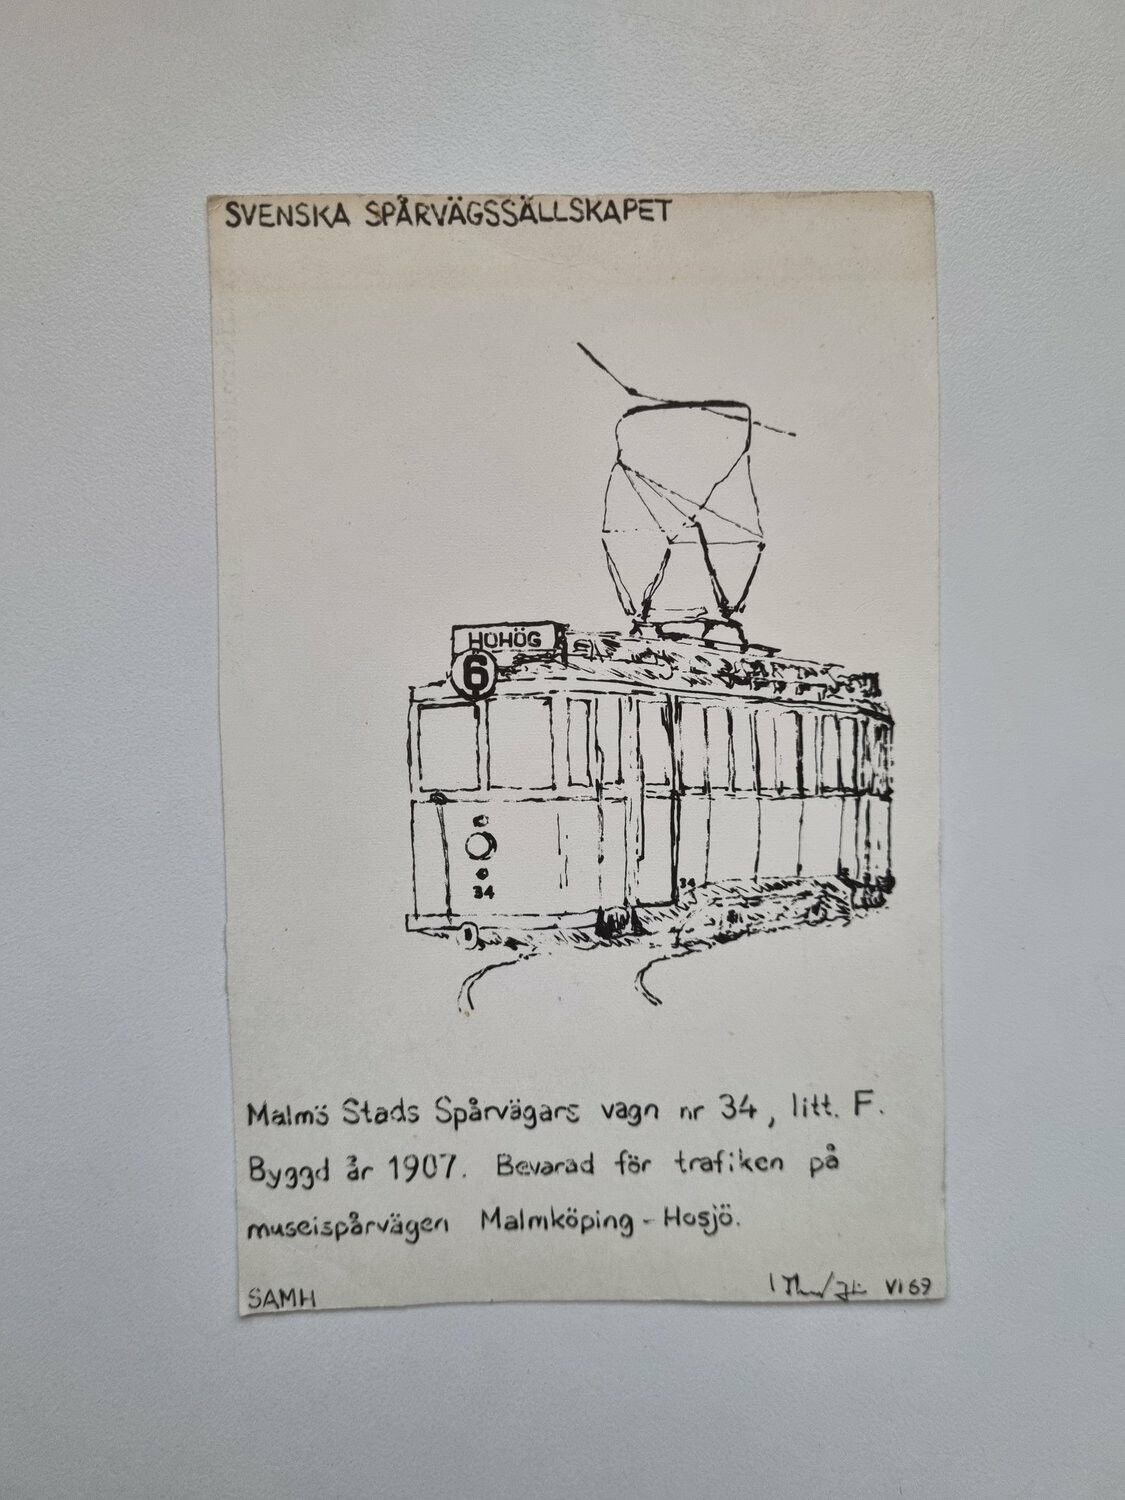 SVENSKA SPÅRVÄGSSÄLLSKAPET
HOHÖG
6
34
34
Malmö Stads Spårvägars vagn nr 34, litt. F.
Byggd år 1907. Bevarad för trafiken på
museispårvägen Malmköping - Hosjö.
SAMH
VI 69